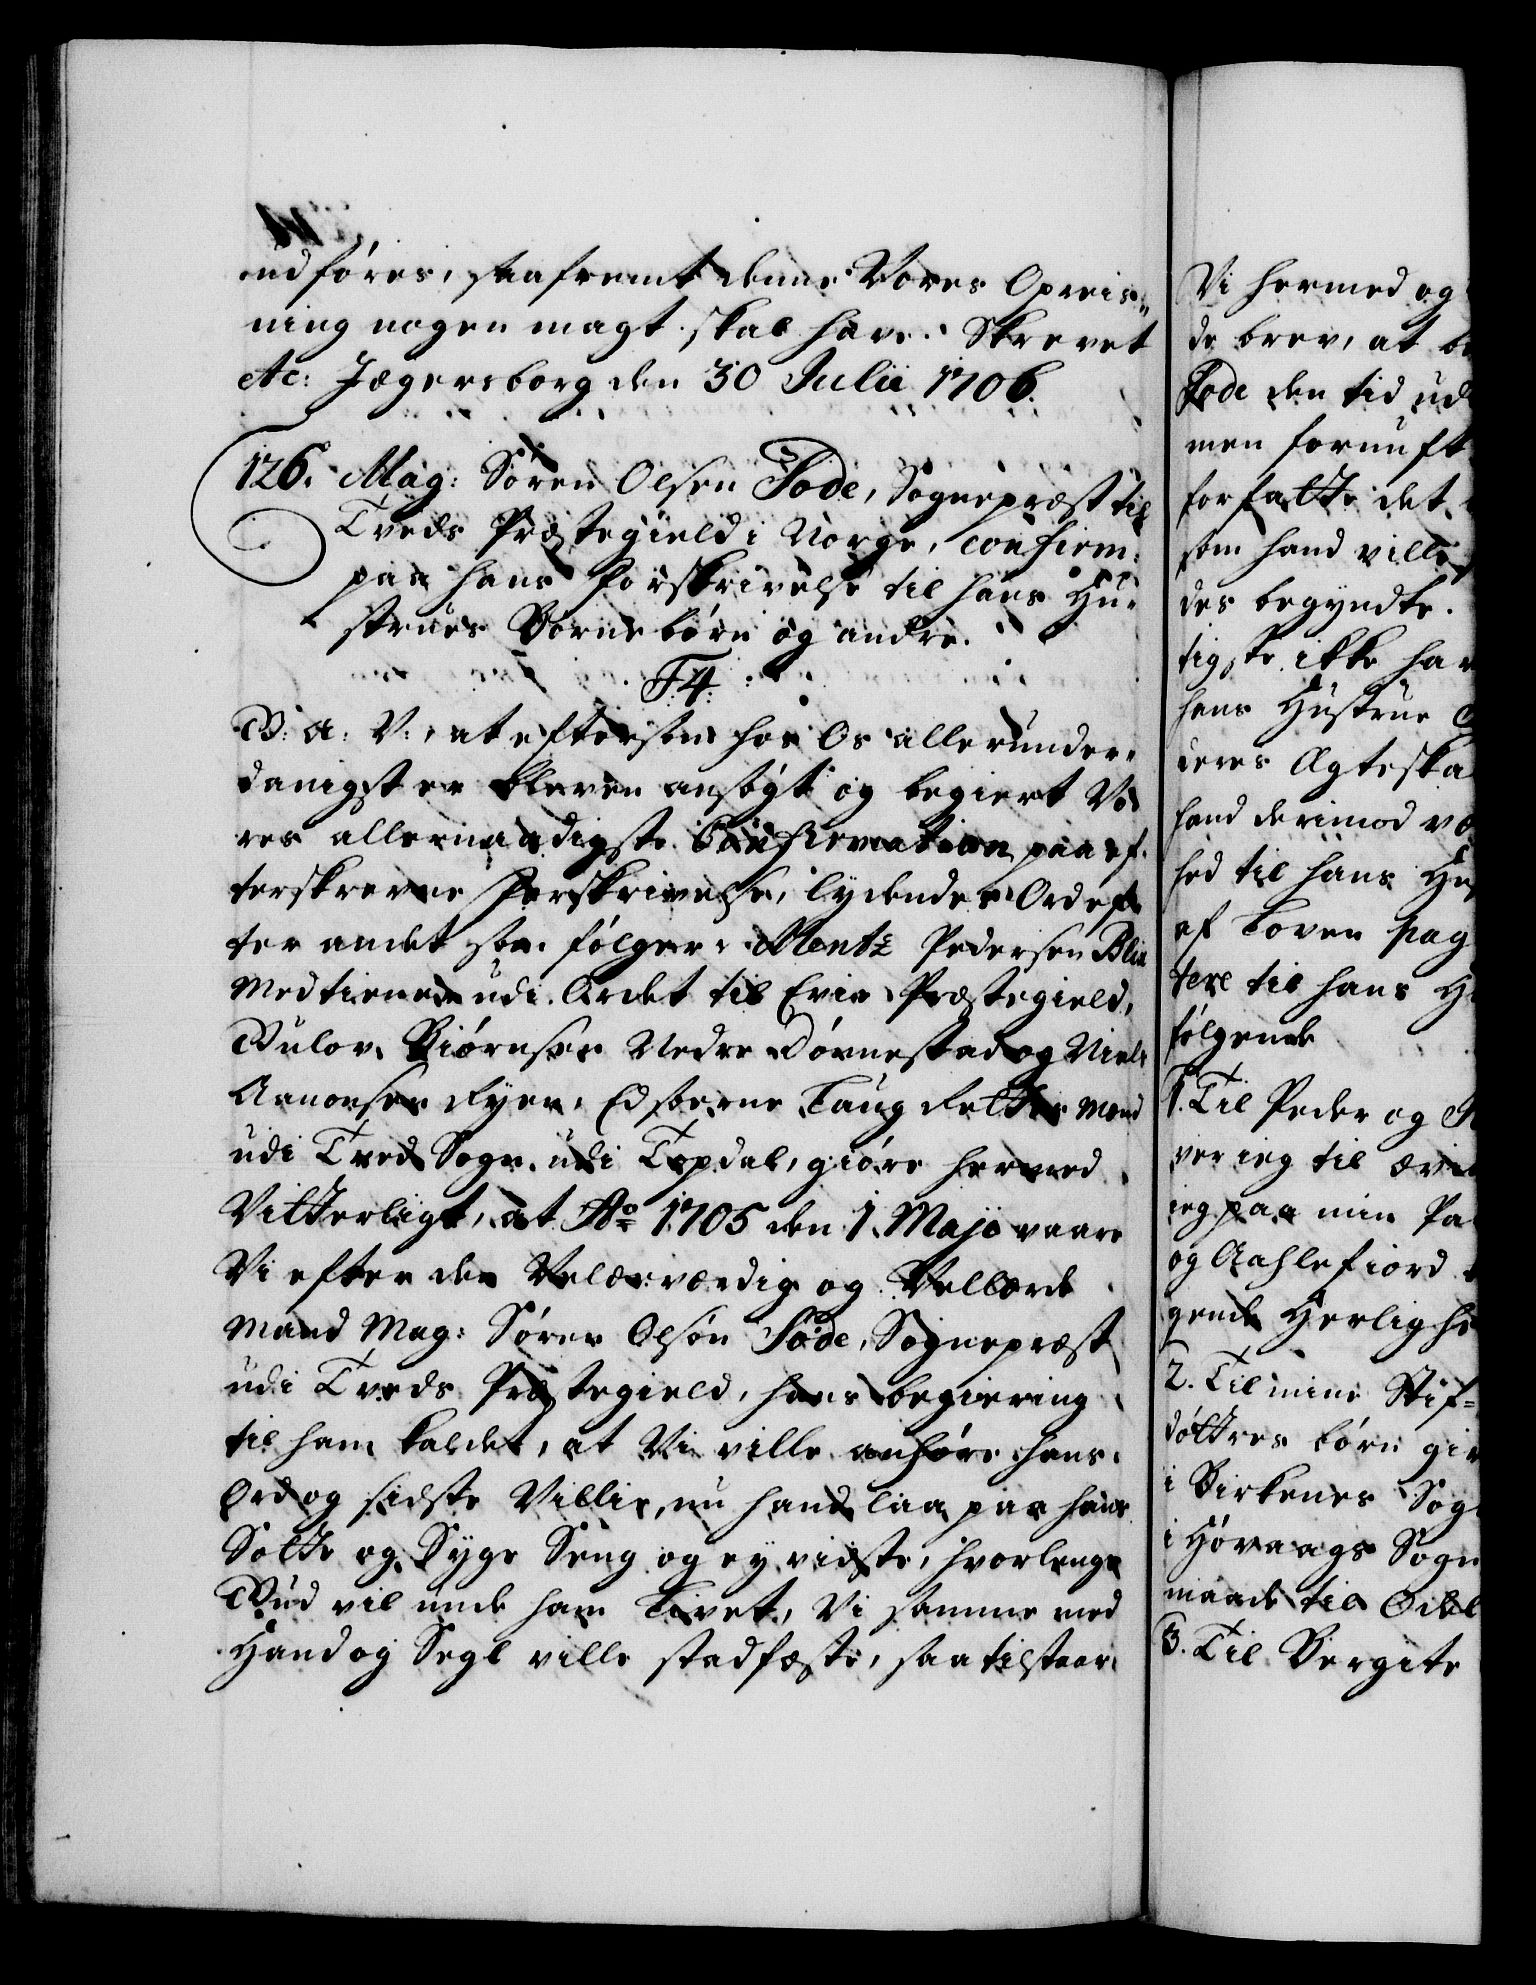 udføres, saafremt denne Vores Opreis„
ning nogen magt skal have. Skrevet
Ac: Jægersborg den 30 Julii 1706.
126. Mag: Søren Olsen Tode, Sognepræst til
Tveds Præstegield i Norge, confirm:
paa hans Forskrivelse til hans Hu„
strues Børnebørn og andre.
F4:
W: A: V:, at eftersom hos Os allerunder„
danigst er bleven ansøgt og begiert Vo
res allernaadigste Confirmation paa ef„
terskrevne Forskrivelse, lydendes Ord ef„
ter andet som følger: Mentz Pedersen
Medtienere udi Ordet til Evie Præstegield,
Biørnsen Nedre Dønnestad og Niels
Aanonsen Ryen, Edsoerne Laug Rettes mend
udi Tved Sogn udi Topdal, giøre hermed
Vitterligt, at Ao 1705 den 1. Majo vaare
Vi efter den Velærværdig og Vellærde
Mand Mag: Søren Olsøn Tode, Sognepræst
udi Tveds Præstegield, hans begiering
til ham kaldet, at Vi ville anhøre hans
Ord og sidste Villie, nu hand laa paa hans
Sotte og Syge Seng og ey vidste, hvorlenge
Gud vil unde ham Livet, Vi samme med
Haand og Segl ville stadfæste, saa tilstaar
Vi hermed og
de brev, at
Tode den tid ud
men fornuft
forfatte det
som hand ville
des begyndte.
tigste ikke har
hans Hustrue
deres Ægteska
hand derimod
hed til hans Hu
af Loven pag
tere til hans H
følgende
1. Til Peder og
ver ieg til
ieg paa min Pa
og Aahlefiord
gende Herlighe
2. Til mine Stif=
døttres børn giv
i Birkenes Sog
i Høvaags Sogn
maade til Odel
3. Til Bergite